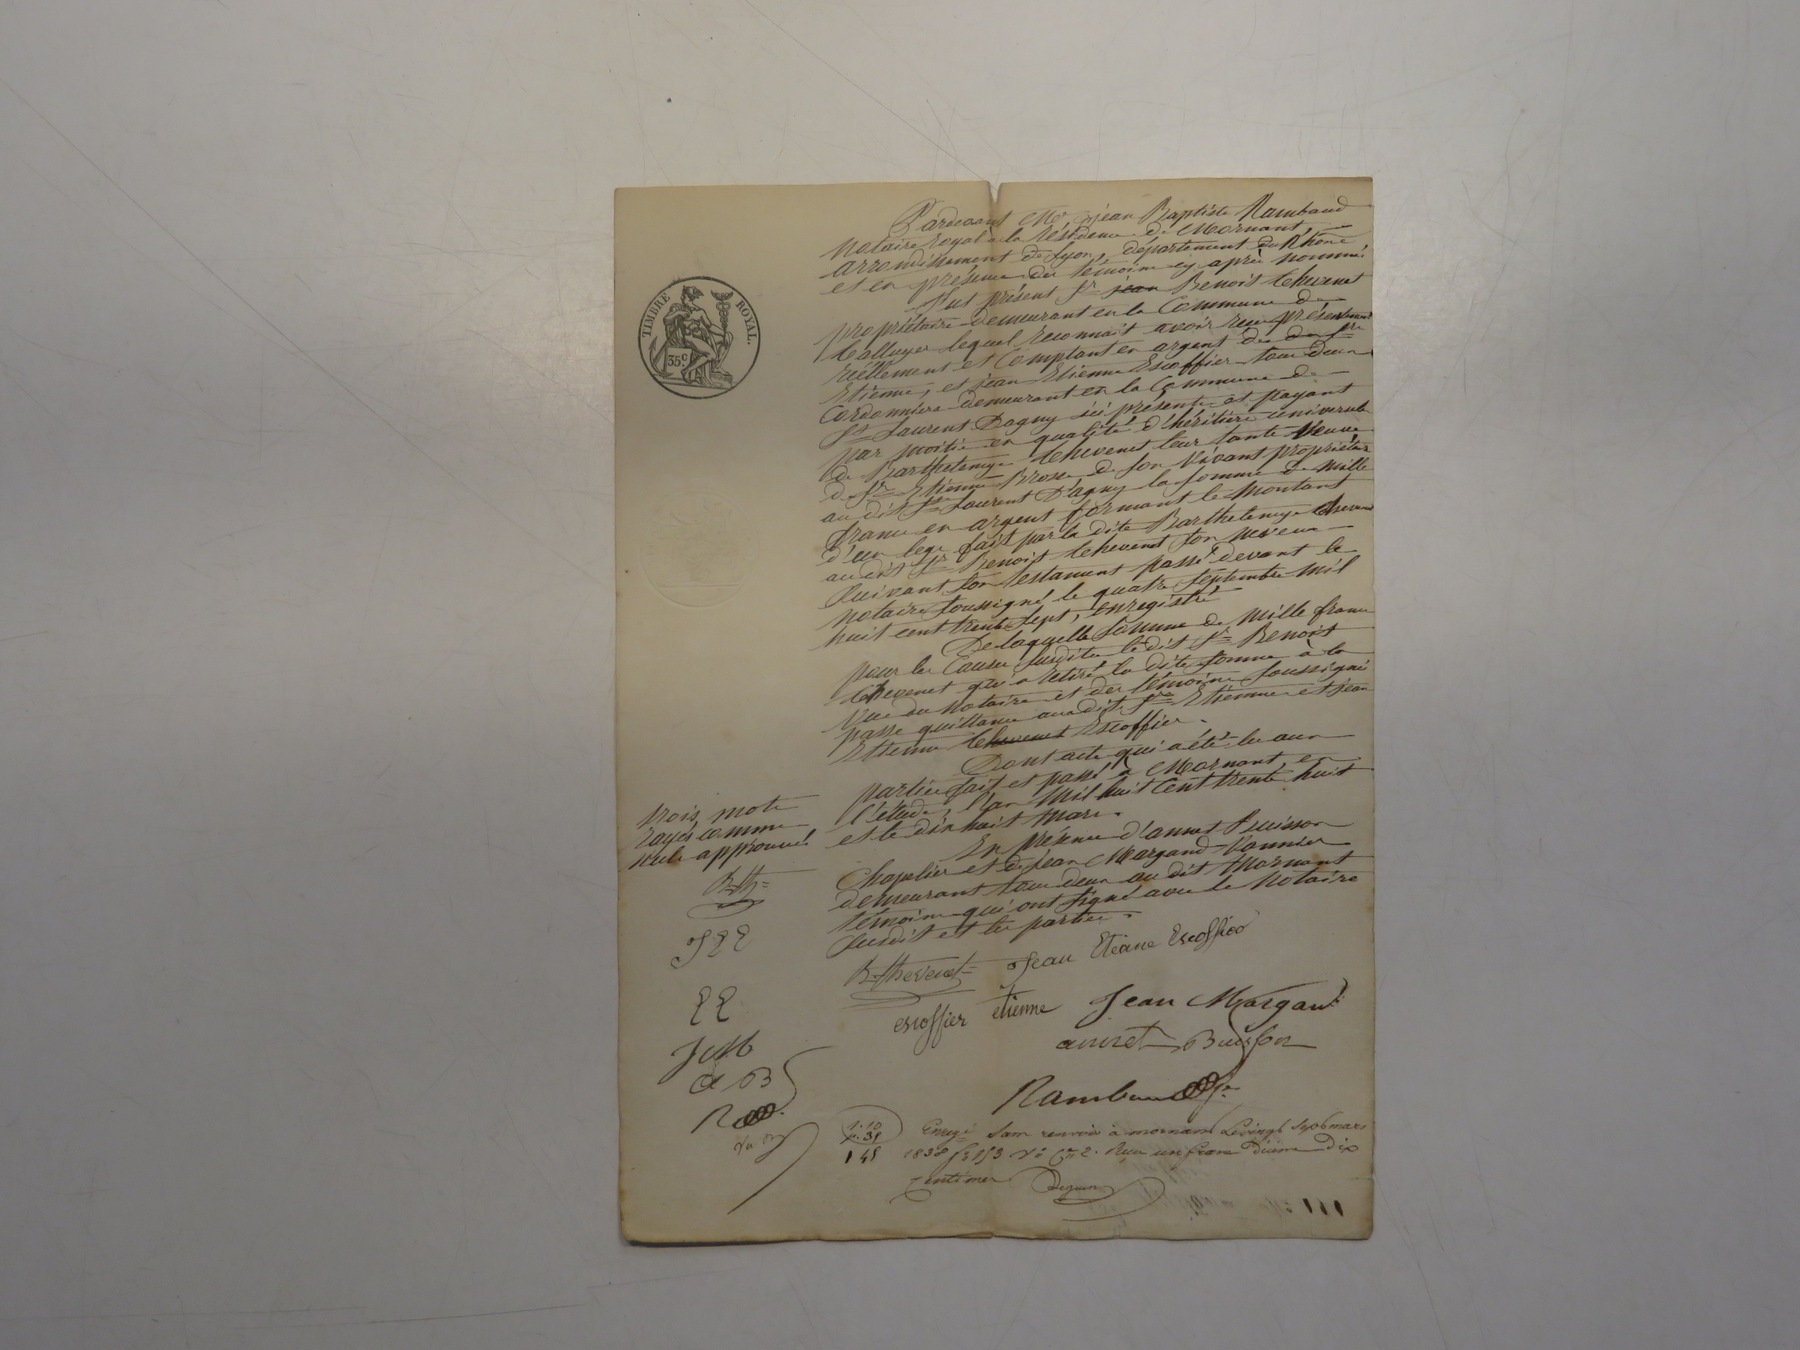 TIMBRE ROYAL.
35c
Pardevant Me jean Baptiste Rambaud
notaire royal à la résidence de Mornant,
arrondissement de Lyon, département du Rhône
et en présence des témoins cy après nommés
fut présent Sr jean Benoit Chevenet
propriétaire demeurant en la Commune de
lequel reconnait avoir reçu présentement
réellement et Comptant en argent des dits Srs
Etienne, et jean Etienne Escoffier tous deux
Cordonniers demeurant en la Commune de
St Laurent Dagny ici présents et payant
par moitié en qualité d'héritiers universels
de Barthelemye Chevenet leur tante Veuve
de Sr Etienne Brosse de son vivant propriétaire
au dit St Laurent D'agny la somme de mille
francs en argent formant le montant
d'un legs fait par la dite Barthelemye Chevenet
au dit Sr Benoit Chevenet son neveu
suivant son testament passé devant le
notaire soussigné le quatre septembre mil
huit cent trente sept, enregistré
De laquelle somme de mille francs
pour les Causes susdites le dit Sr Benoit
Chevenet qui a retiré la dite somme à la
vue du notaire et des témoins soussignés
passe quittance aux dits Srs Etienne et jean
Etienne Chevenet Escoffier.
Dont acte qui a été lu aux
parties fait et passé à Mornant, en
l'étude, l'an mil huit Cent trente huit
et le dix huit mars.
En présence d'annet Buisson
Chapelier et de jean Margand Vannier
demeurant tous deux au dit Mornant
témoins qui ont signé avec le notaire
susdit et les parties.
trois mots
rayés comme
nuls approuvés
B. th
J E E
E E
J M
a B
R
B. thevenet jean Etiene Escoffier
escoffier etienne Jean Margand
annet Buisson
Rambaud
1. 10
. 35
1 45
Enregé sans renvoi à mornant Le vingt six mars
1838 fo 153 Vo Ce 2. Reçu un franc Décime Dix
centimes